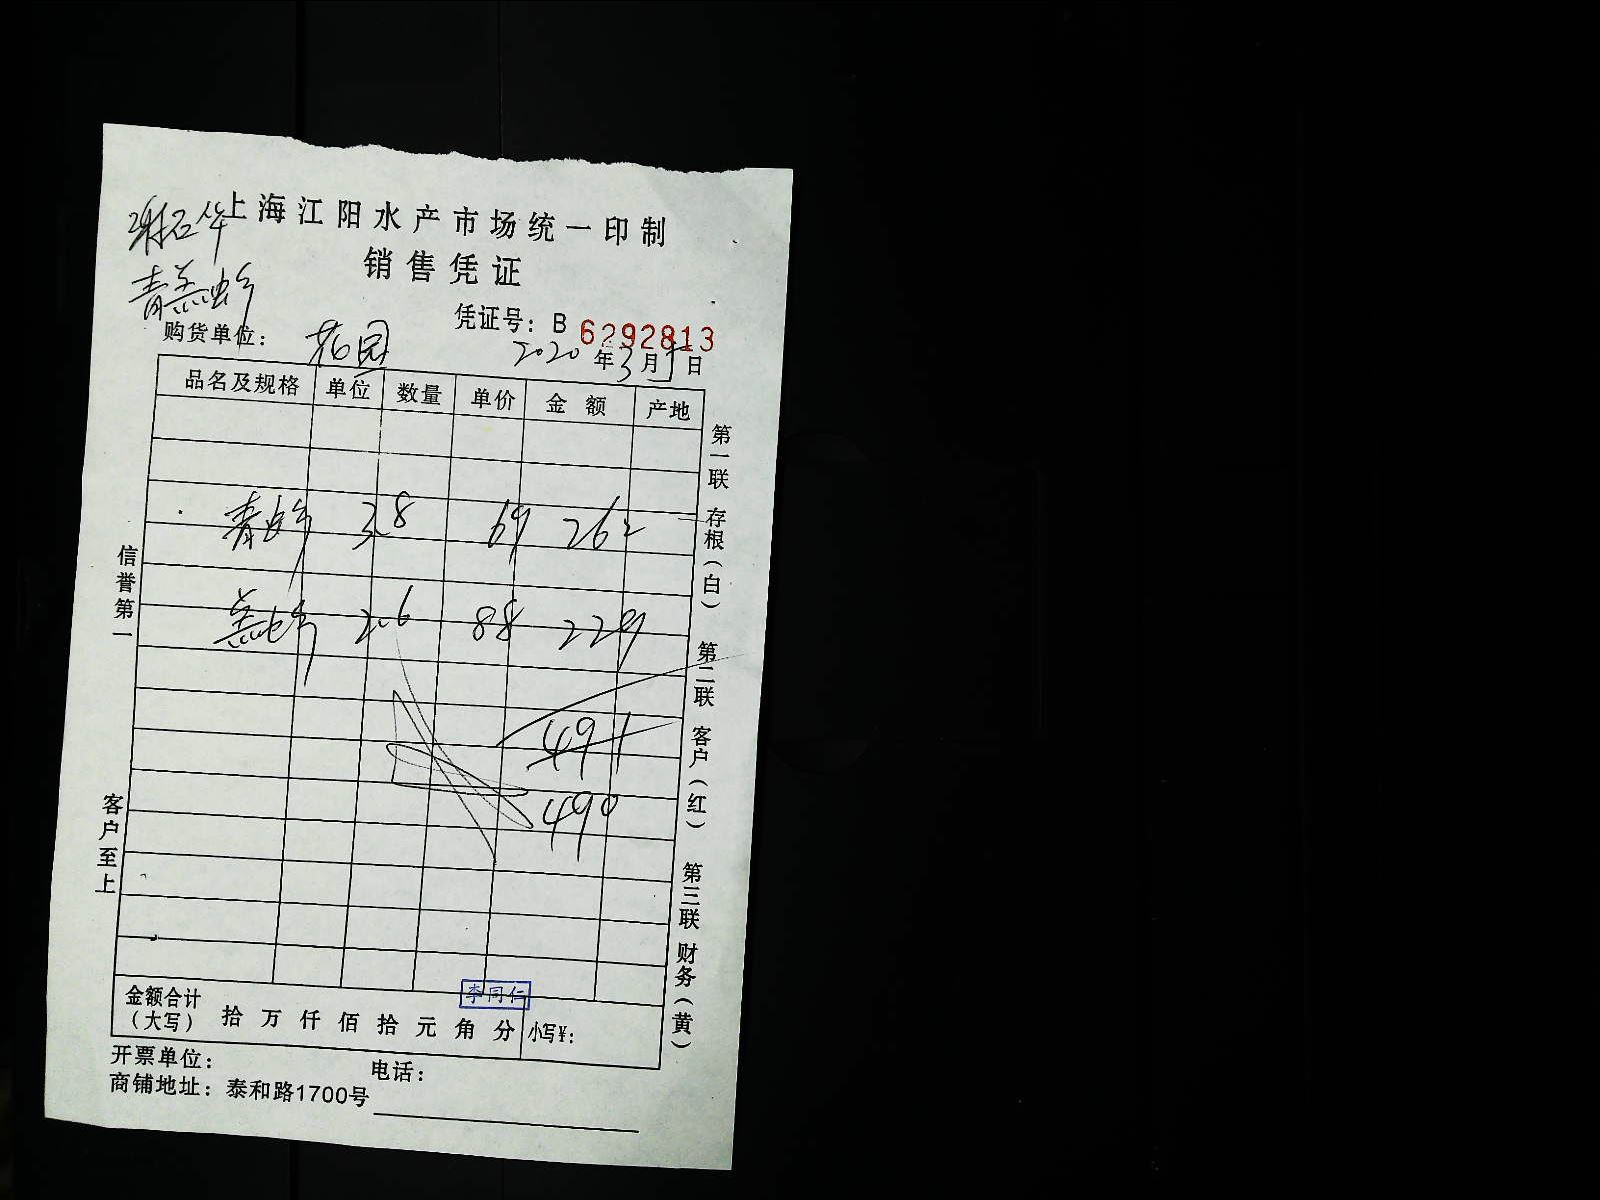 上海江阳水产市场统一印制
销售凭证
凭证号：B 6292813
购货单位： 花园
2020年3月5日
品名及规格 单位 数量 单价 金额 产地
青 3.8 69 262
羔 2.6 88 229
491
490
金额合计（大写） 拾万仟佰拾元角分 小写¥：
李同仁
开票单位： 电话：
商铺地址：泰和路1700号
信誉第一 客户至上
第一联 存根（白） 第二联 客户（红） 第三联 财务（黄）